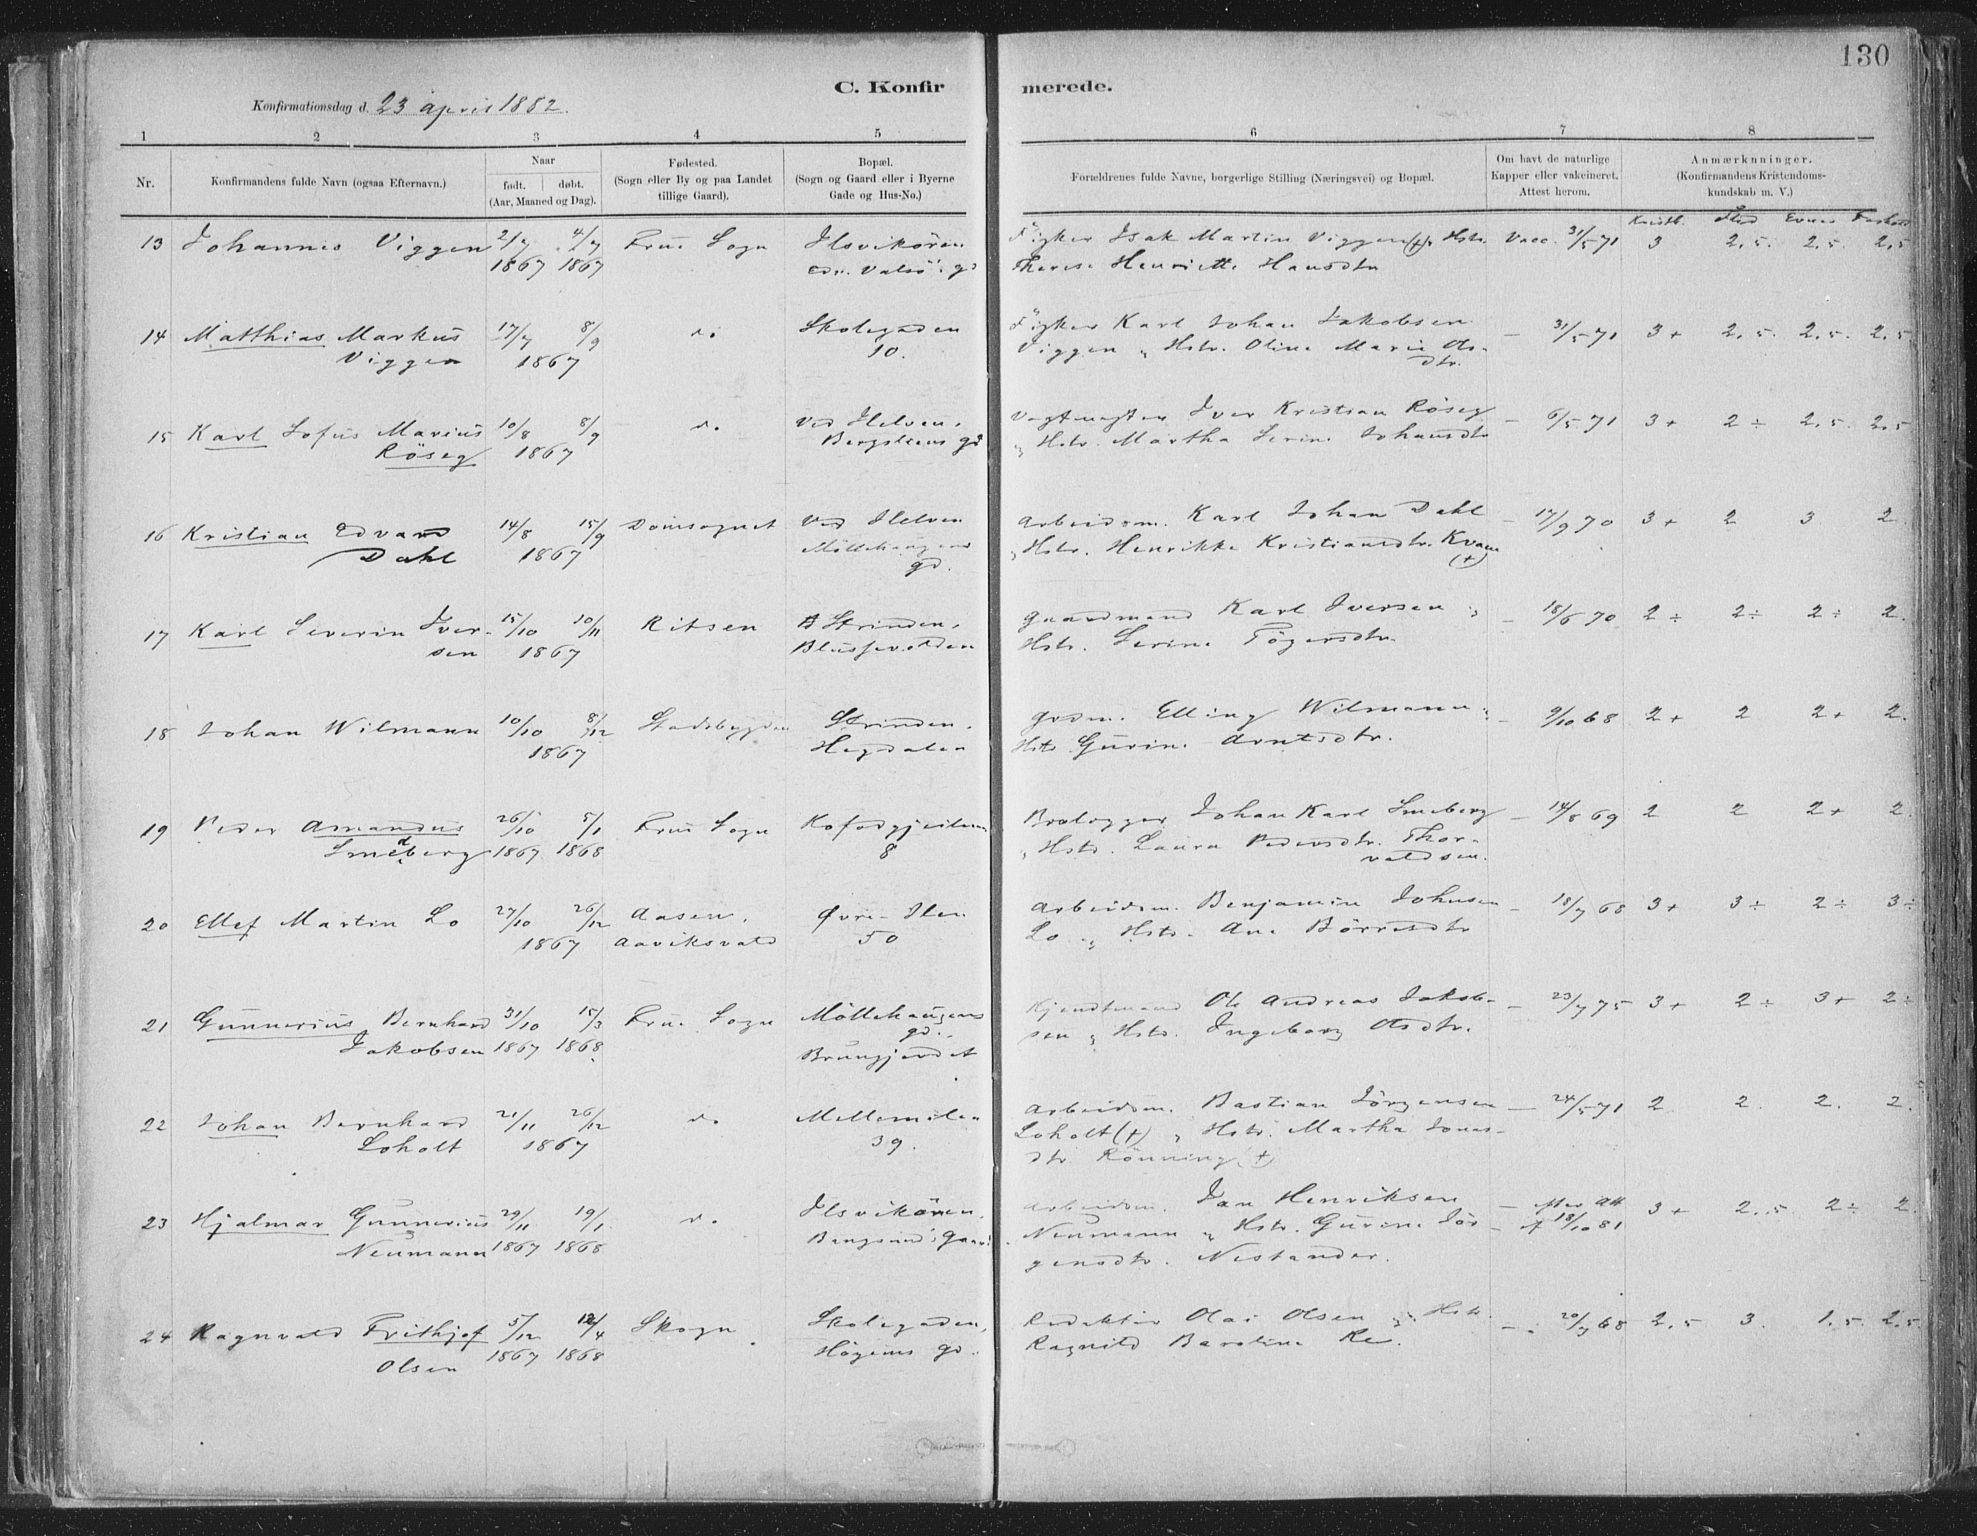 130
C. Konfirmerede.
Konfirmationsdag d. 23 april 1882.
1 2 3 4 5 6 7 8
Nr. Konfirmandens fulde Navn (ogsaa Efternavn.) Naar født. døbt. (Aar, Maaned og Dag). Fødested. (Sogn eller By og paa Landet tillige Gaard). Bopæl. (Sogn og Gaard eller i Byerne Gade og Hus-No.) Forældrenes fulde Navne, borgerlige Stilling (Næringsvei) og Bopæl. Om havt de naturlige Kapper eller vakcineret. Attest herom. Anmærkninger. (Konfirmandens Kristendomskundskab m. V.)
Kristk. Flid Evner Forhold
13 Johannes Viggen 2/7 4/7 Frue Sogn Ilsvikören Fisker Isak Martin Viggen (+) Hstr. Vacc. 31/5 71 3 2,5. 2,5. 2,5
1867 1867 gd Therese Henriette Hansdtr
14 Matthias Markus 17/7 8/9 do Skolegaden Fisker Karl Johan Jakobsen — 31/5 71 3+ 2,5. 2,5. 2,5
Viggen 1867 10. Viggen " Hstr. Oline Marie Ols-
dtr.
15 Karl Sofus Marius 10/8 8/9 do Ved Ilelven, Iver Kristian Röseg — 6/5 71 3+ 2÷ 2,5. 2,5
Röseg 1867 Bergsteens gd " Hstr. Martha Serine Johansdtr
16 Kristian Edvard 14/8 15/9 Domsognet Ved Ilelven Arbeidsm. Karl Johan Dahl — 17/9 70 3+ 2 3 2
Dahl 1867 Möllehaugens gd. " Hstr. Henrikke Kristiansdtr. Kvam (+)
17 Karl Severin Iver- 15/10 10/11 Ritsen B Strinden, Gaardmand Karl Iversen " — 18/6 70 2÷ 2÷ 2÷ 2.
sen 1867 Blussuvolden Hstr. Serine Tögersdtr.
18 Johan Wilmann 10/10 8/12 Stadsbygden Strinden, Grdm. Elling Wilmann " — 9/10 68 2+ 2 2+ 2.
1867 Hegdalen Hstr Gurine Arntsdtr.
19 Peder Amandus 26/10 5/1 Frue Sogn Kofodgjeilen Brolægger Johan Karl Smeberg — 14/8 69 2 2 2+ 2.
Smedberg 1867 1868 8 " Hstr. Laura Pedersdtr. Thor-
valdsen.
20 Ellef Martin Lo 27/10 26/12 Aasen, Øvre Ilen Arbeidsm. Benjamin Johnsen — 18/7 68 3+ 3÷ 2÷ 3÷
1867 Aaviksvald 50 Lo " Hstr. Ane Börresdtr
21 Gunnerius Bernhard 31/10 15/3 Frue Sogn Möllehaugens Kjendtmand Ole Andreas Jakob- — 23/7 75 3+ 2÷ 3+ 2÷
Jakobsen 1867 1868 gd. sen " Hstr. Ingeborg Olsdtr.
Brungjerdet
22 Johan Bernhard 21/11 26/12 do Mellemilen Arbeidsm. Bastian Jörgensen — 24/5 71 2 2. 2. 2.
Loholt 1867 39. Loholt (+) " Hstr. Martha Jonas-
dtr Rönning (+)
23 Hjalmar Gunnerius 29/11 19/1 do Ilsvikören, Arbeidsm. Jan Henriksen — efter Att 3+ 2,5 2÷ 2.
Neumann 1867 1868 Bangsund's Gaard. Neumann " Hstr. Gurine Jör- — af 18/10 81
gensdtr. Nestander.
24 Ragnvald Frithjof 5/12 12/4 Skogn Skolegaden, Redaktör Olai Olsen " Hstr. — 20/7 68 2,5 3. 1,5 2,5.
Olsen 1867 1868 Högems gd. Ragnild Baroline Re.